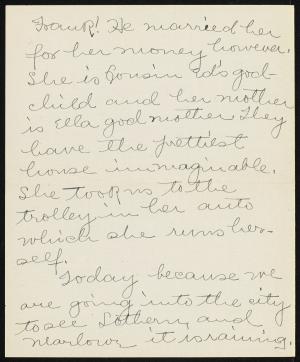 Frank! He married her
for her money however.
She is Cousin Ed's god-
child and her mother
is Ella god mother. They
have the prettiest
house immaginable.
She took us to the
trolley in her auto
which she runs her-
self.
Today because we
are going into the city
to see Sothern and
Marlowe it is raining.